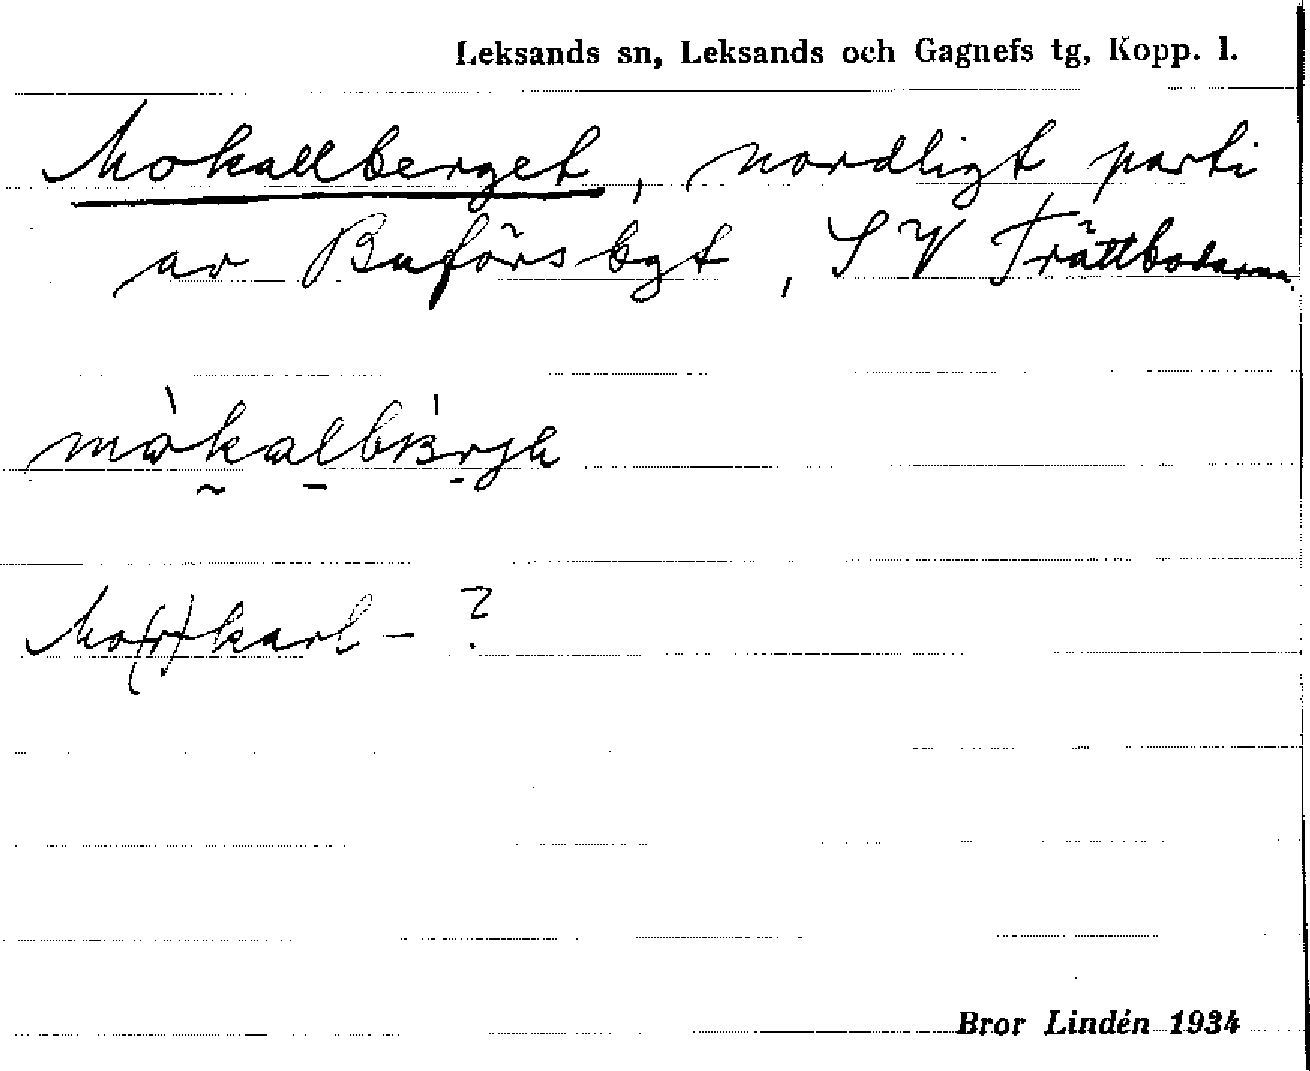 Leksands sn, Leksands och Gagnefs tg, Kopp. l.
Mokallberget, nordligt parti
av Buförsbgt, SV Trättbodarna.
Mo(r)karl- ?
Bror Lindén 1934